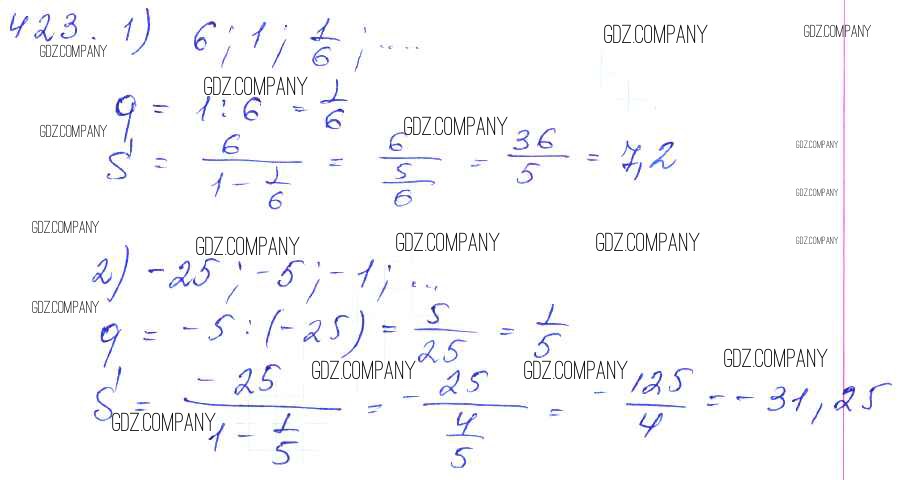 423. 1) 6; 1; 1/6; ....
GDZ.COMPANY GDZ.COMPANY GDZ.COMPANY
GDZ.COMPANY
q = 1 : 6 = 1/6
GDZ.COMPANY GDZ.COMPANY
S = 6/(1 - 1/6) = 6/(5/6) = 36/5 = 7,2
GDZ.COMPANY
GDZ.COMPANY
GDZ.COMPANY
GDZ.COMPANY GDZ.COMPANY GDZ.COMPANY GDZ.COMPANY
2) -25; -5; -1; ...
GDZ.COMPANY
q = -5 : (-25) = 5/25 = 1/5
GDZ.COMPANY GDZ.COMPANY GDZ.COMPANY
S = -25/(1 - 1/5) = -25/(4/5) = -125/4 = -31,25
GDZ.COMPANY